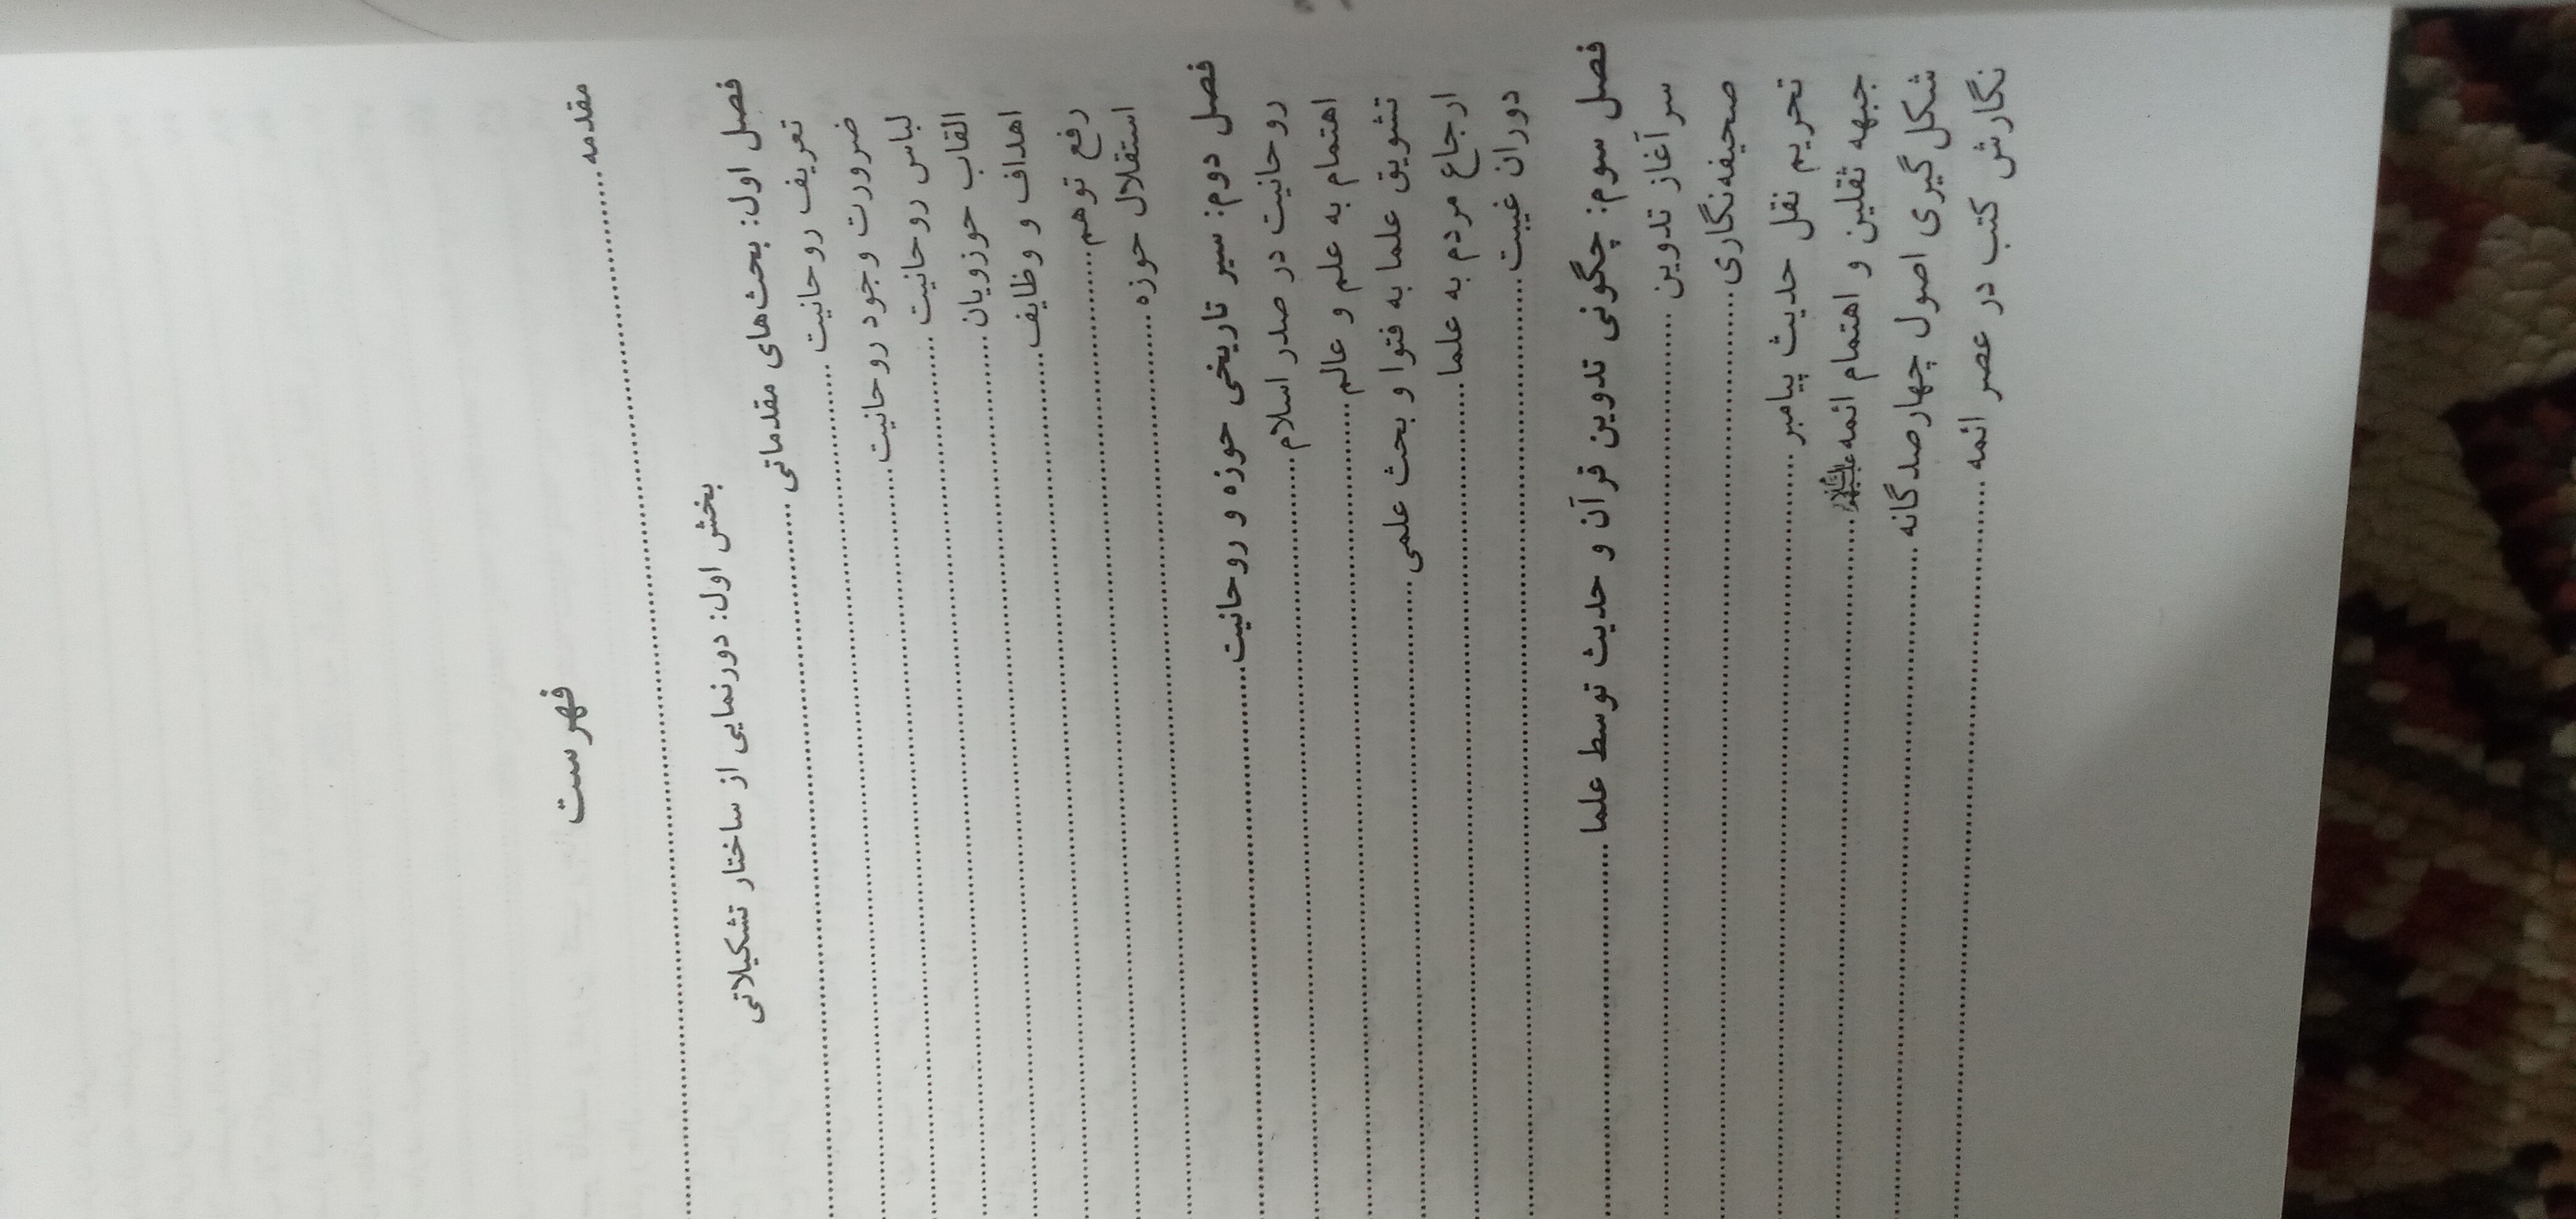 فهرست
مقدمه
بخش اول: دورنمایی از ساختار تشکیلاتی
فصل اول: بحث‌های مقدماتی
تعریف روحانیت
ضرورت وجود روحانیت
لباس روحانیت
القاب حوزویان
اهداف و وظایف
رفع توهم
استقلال حوزه
فصل دوم: سیر تاریخی حوزه و روحانیت
روحانیت در صدر اسلام
اهتمام به علم و عالم
تشویق علما به فتوا و بحث علمی
ارجاع مردم به علما
دوران غیبت
فصل سوم: چگونی تدوین قرآن و حدیث توسط علما
سرآغاز تدوین
صحیفه‌نگاری
تحریم نقل حدیث پیامبر
جبهه ثقلین و اهتمام ائمه علیهم‌السلام
شکل گیری اصول چهارصدگانه
نگارش کتب در عصر ائمه